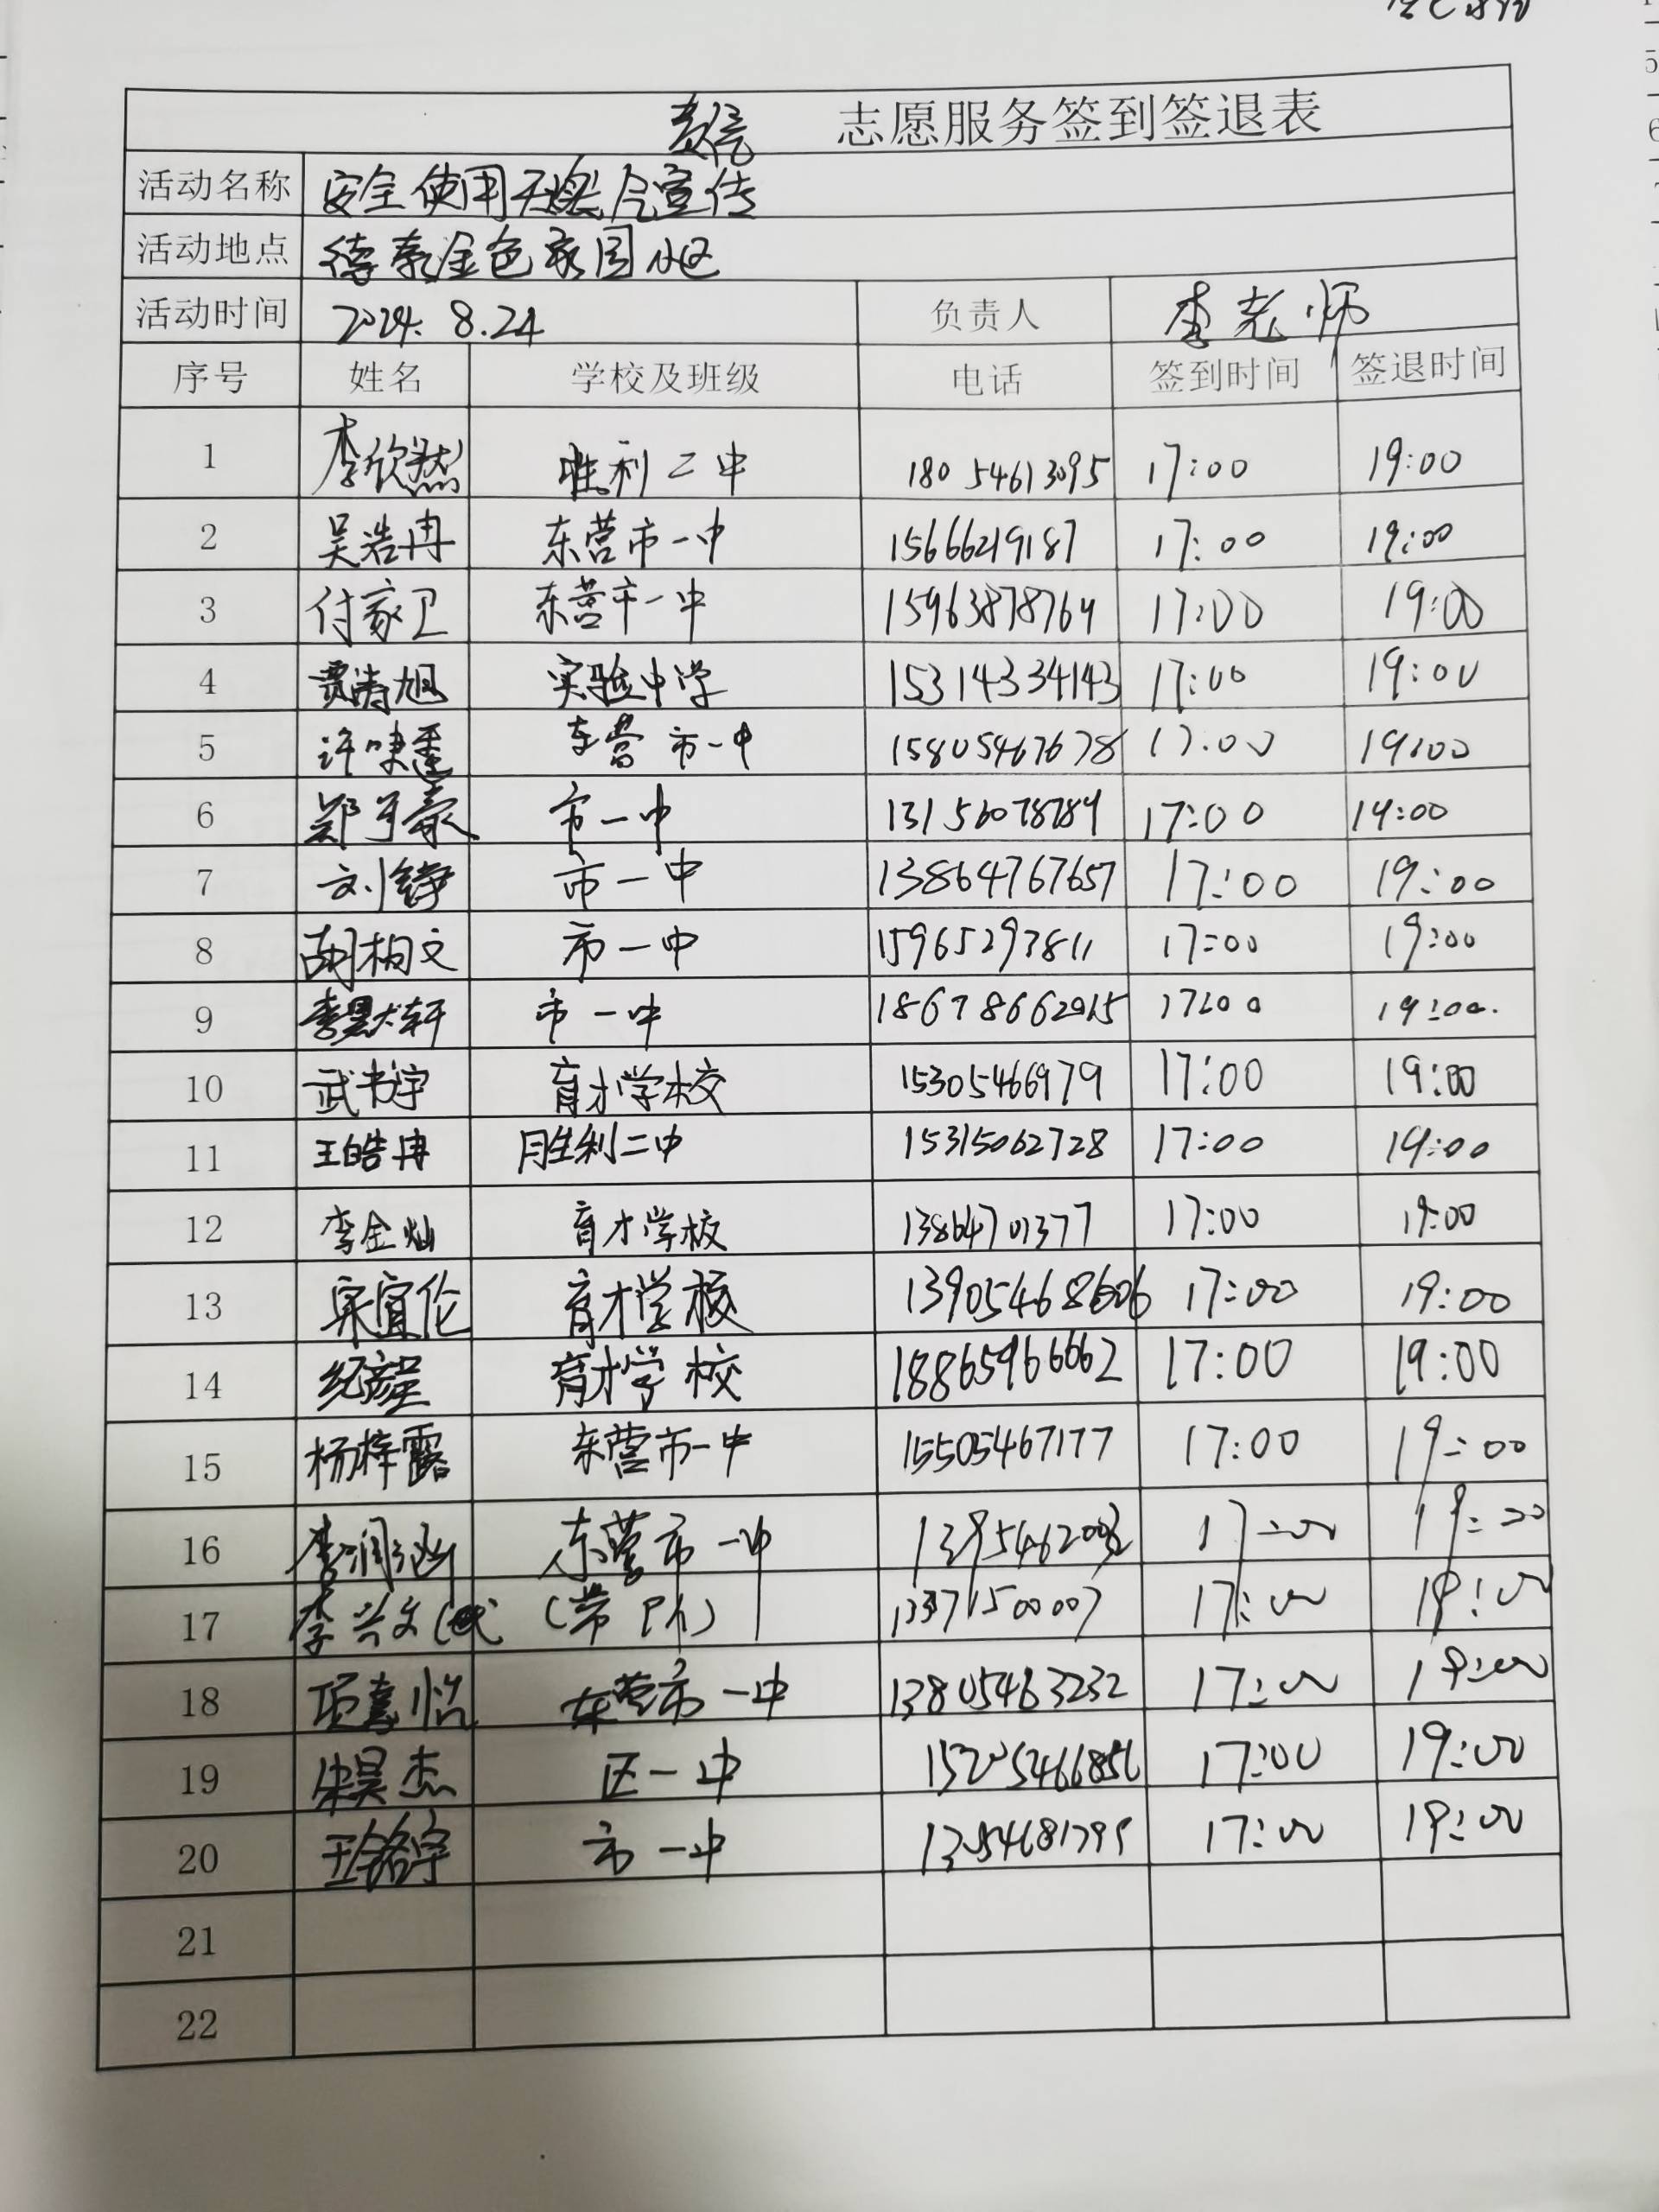 志愿服务签到签退表
活动名称 安全使用天燃气宣传
活动地点 德泰金色家园小区
活动时间 2024.8.24 负责人 李老师
序号 姓名 学校及班级 电话 签到时间 签退时间
1 李欣然 胜利二中 18054613095 17:00 19:00
2 吴浩冉 东营市一中 15666219187 17:00 19:00
3 付家卫 东营市一中 15963878764 17:00 19:00
4 贾涛旭 实验中学 15314334143 17:00 19:00
5 许 东营市一中 15805467678 17:00 19:00
6 郑予豪 市一中 13156078789 17:00 19:00
7 刘铮 市一中 13864767657 17:00 19:00
8 胡柏文 市一中 15965297811 17:00 19:00
9 李昊轩 市一中 17:00 19:00
10 武书宇 育才学校 15305466979 17:00 19:00
11 王皓冉 胜利二中 15315062728 17:00 19:00
12 李金灿 育才学校 13864701377 17:00 19:00
13 宋宜伦 育才学校 13905468606 17:00 19:00
14 育才学校 18865966662 17:00 19:00
15 杨梓露 东营市一中 15505467177 17:00 19:00
16 李润泓 东营市一中 17:00 19:00
17 李兴文 17:00 19:00
18 项嘉怡 东营市一中 13805463232 17:00 19:00
19 朱昊杰 区一中 17:00 19:00
20 市一中 17:00 19:00
21
22